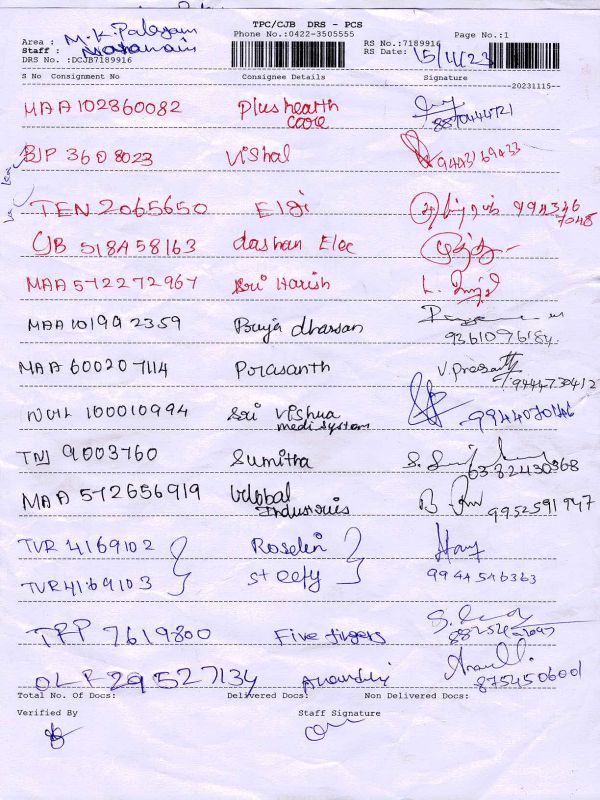 TPC/CJB DRS - PCS
Area : M.K. Palayam Phone No.:0422-3505555 RS No.:7189916 Page No.:1
Staff : RS Date: 15/11/23
DRS No. :DCJB7189916
S No Consignment No Consignee Details Signature
20231115
MAA 102860082 Plus health
care 8870444721
BJP 3608023 Vishal 9443169433
TEN 2065650 Elgi 994346
7048
CJB 518458163 dashan Elec
MAA 572272967 Sri Harish
MAA 101992359 Pooja dharsan
9361096184
MAA 600207114 Porasanth V. Prasanth
9444730412
100010994 Sri Vishua
medi system 9944070146
TNJ 9003760 Sumitha
6382430368
MAA 572656919 Global
Industries 9952591947
TVR 4169102 Roselin
TVR 4169103 Steefy 9944546363
TRP 7619800 Five fingers
OLR 29527134 Anandhi
8754506001
Total No. Of Docs: Delivered Docs: Non Delivered Docs:
Verified By Staff Signature